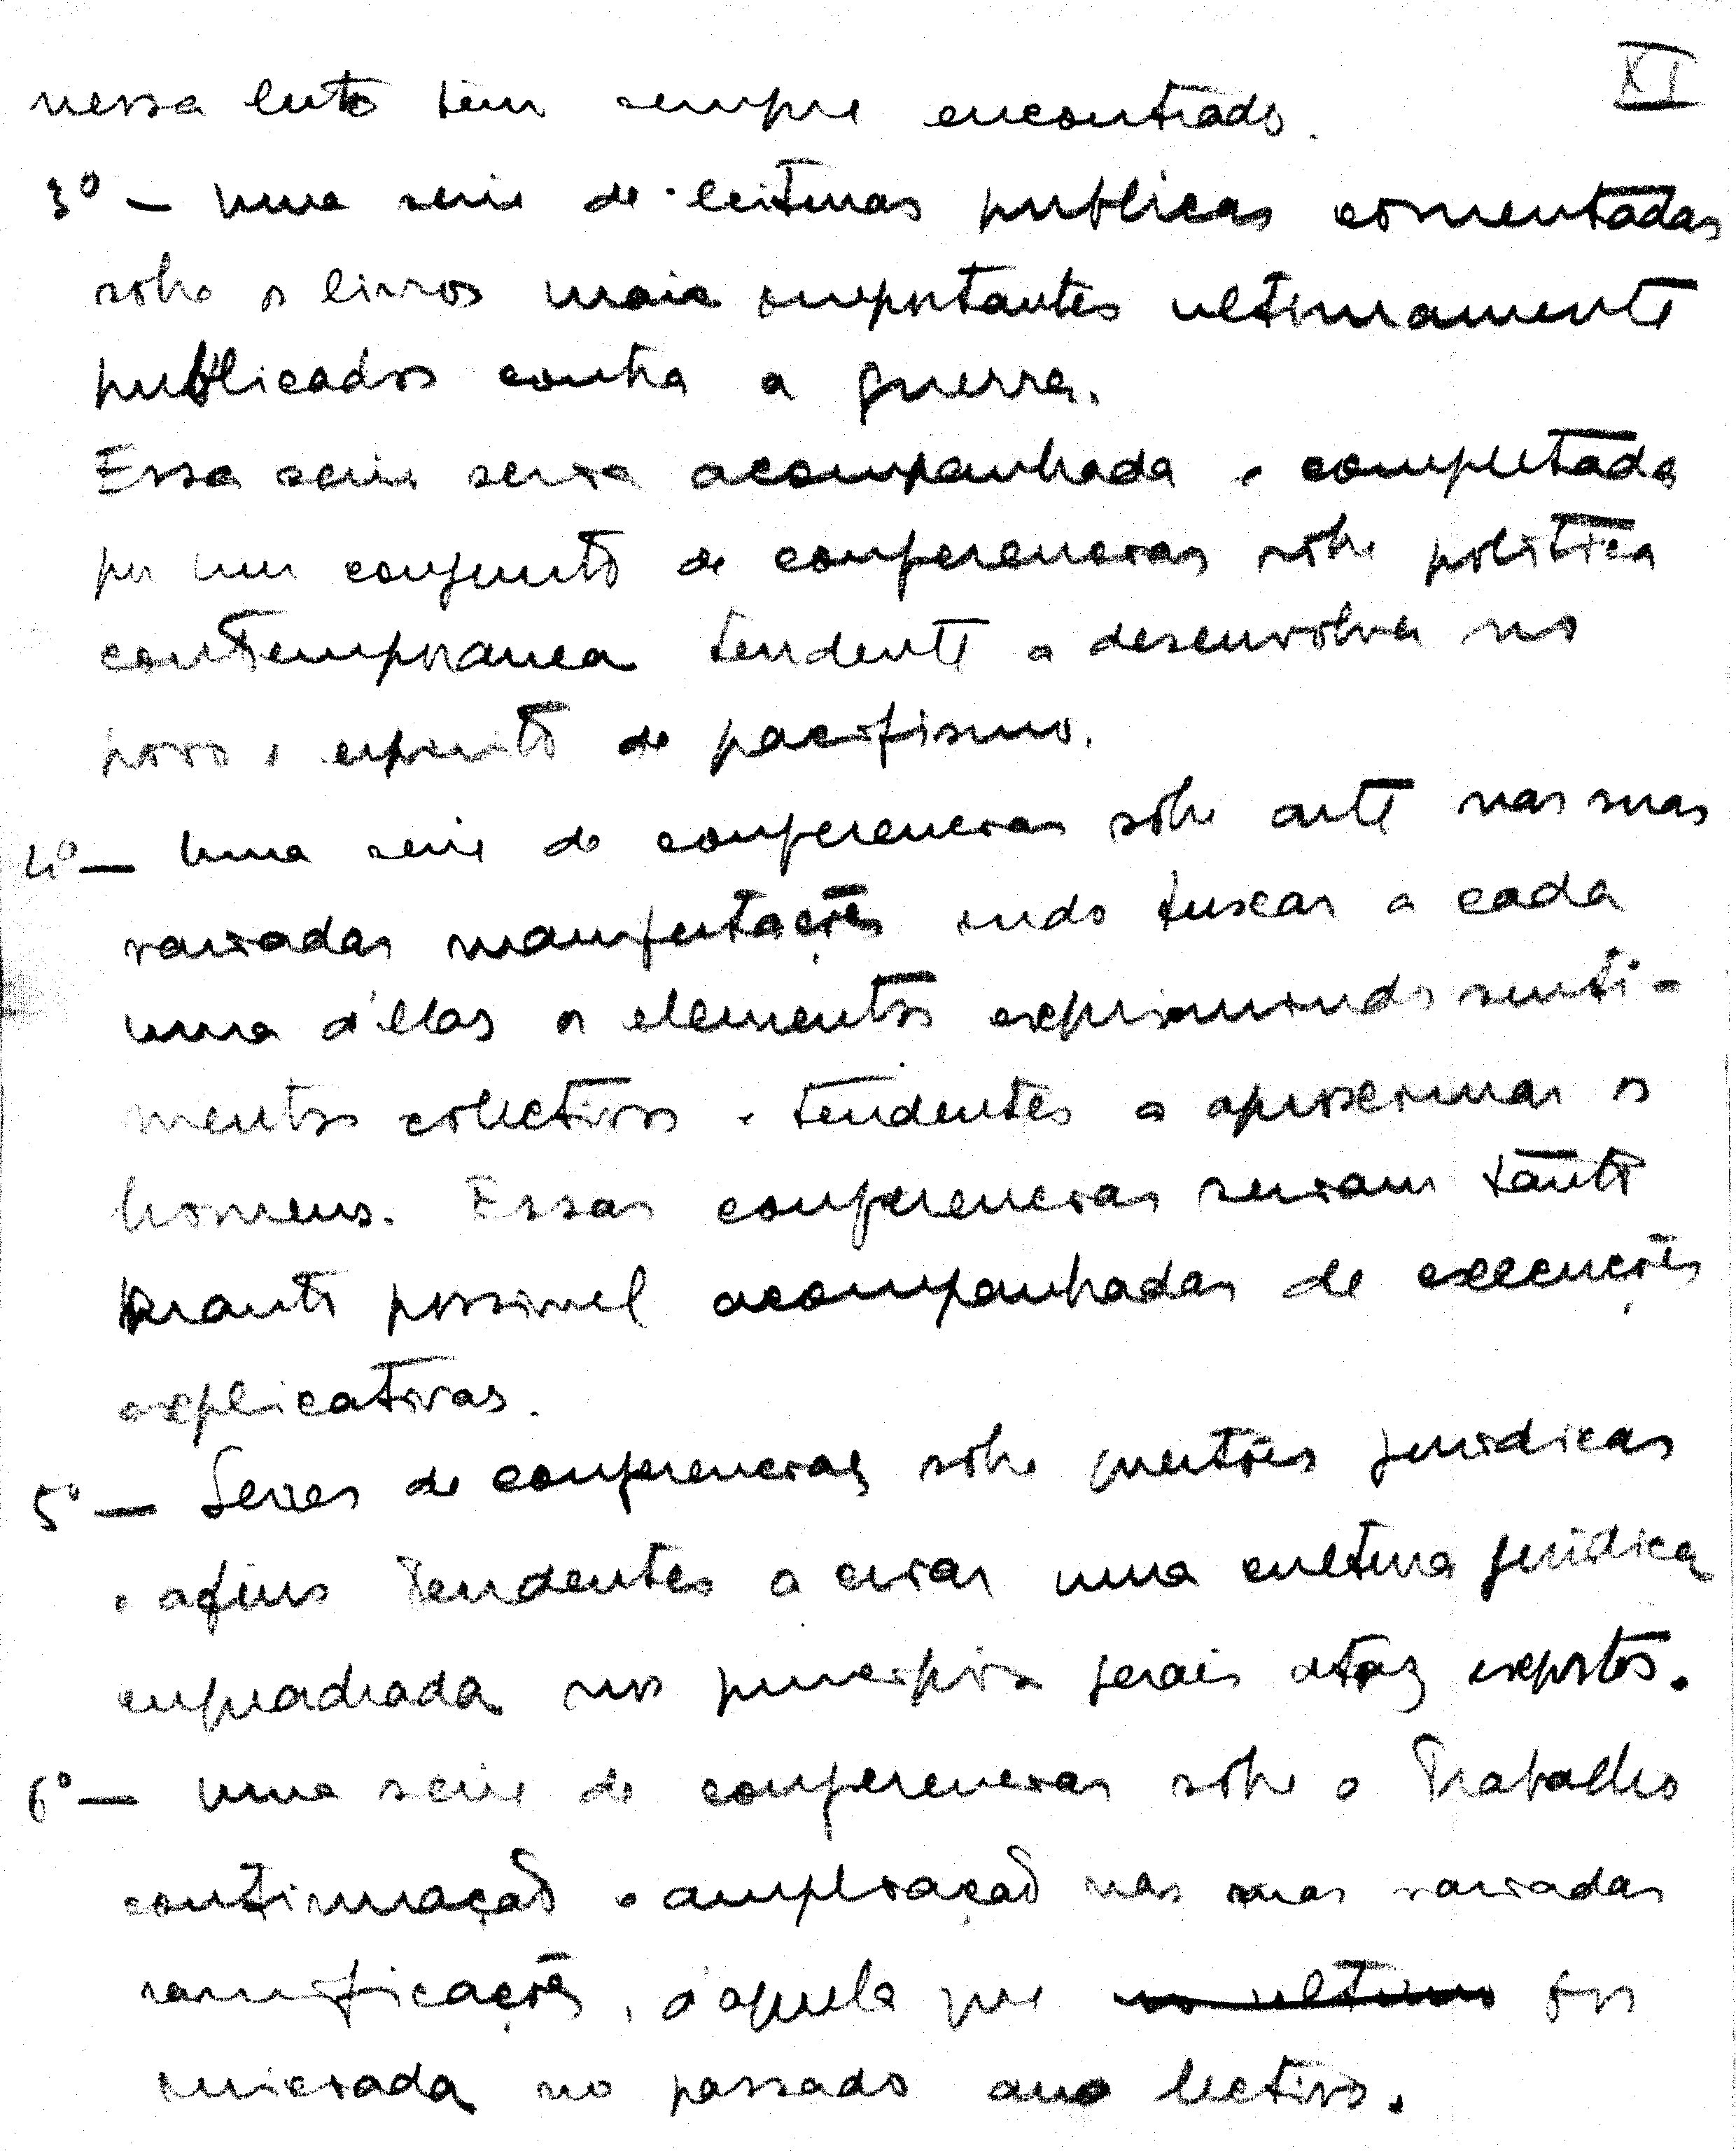 XI
nessa luta tem sempre encontrado.
3º — Uma serie de leituras publicas comentadas
sobre os livros mais importantes ultimamente
publicados contra a guerra.
Essa serie seria acompanhada e completada
por um conjunto de conferencias sôbre politica
contemporanea tendente a desenvolver no
povo o espirito de pacifismo.
4º — Uma serie de conferencias sôbre arte nas suas
variadas manifestações indo buscar a cada
uma d'elas os elementos exprimindo senti-
mentos colectivos e tendentes a aproximar os
homens. Essas conferencias seriam tanto
quanto possivel acompanhadas de execuções
explicativas.
5º — Series de conferencias sôbre questões juridicas
e afins tendentes a criar uma cultura juridica
enquadrada nos principios gerais atraz expostos.
6º — Uma serie de conferencias sôbre o Trabalho
continuação e ampliação nas suas variadas
ramificações, d'aquela que no ultimo foi
iniciada no passado ano lectivo.